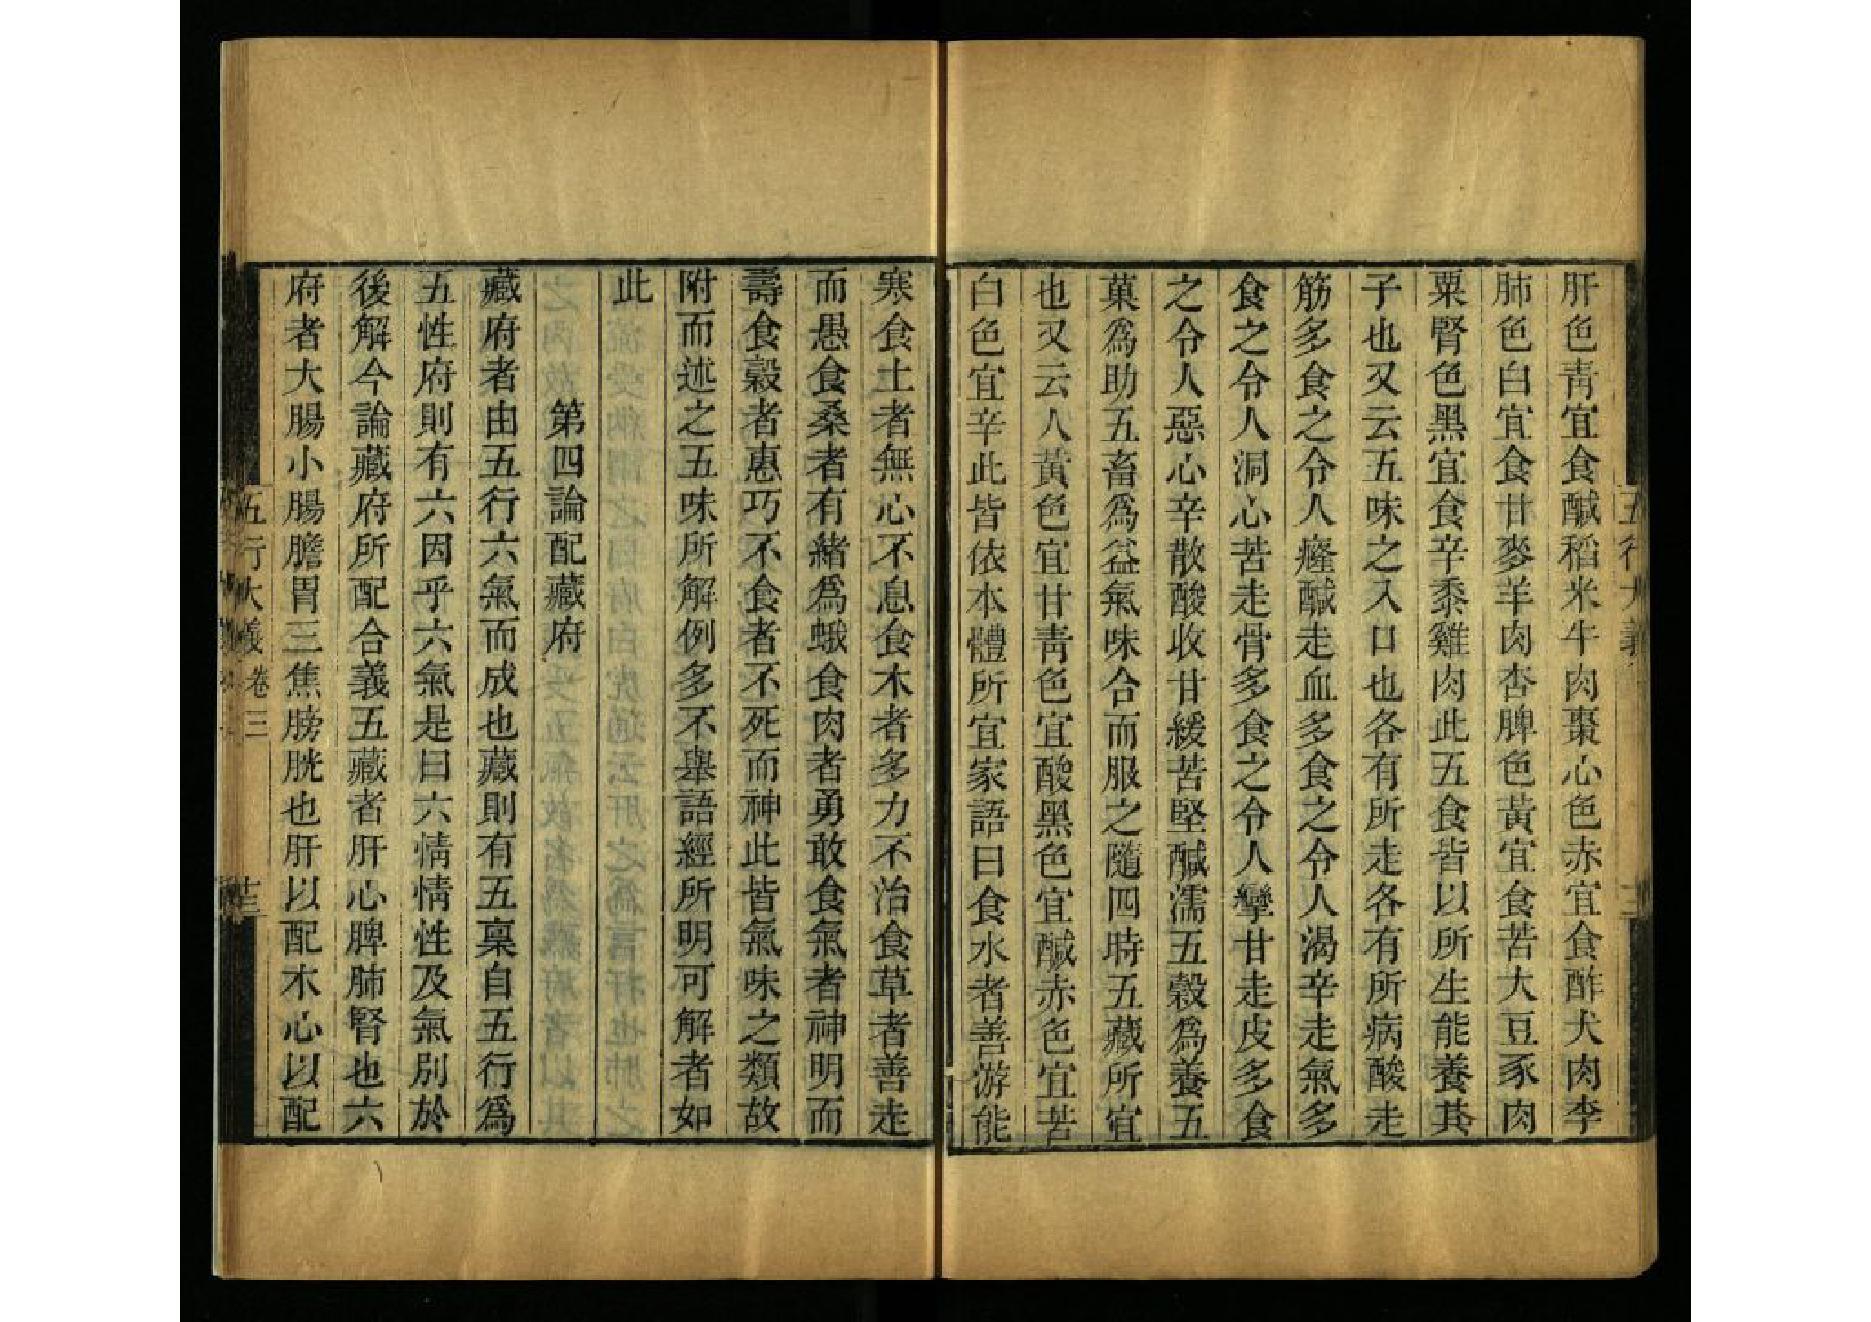 肝色青宜食醎稻米牛肉棗心色赤宜食酢犬肉李
肺色白宜食甘麥羊肉杏脾色黃宜食苦大豆豕肉
粟腎色黑宜食辛黍雞肉此五食皆以所生能養其
子也又云五味之入口也各有所走各有所病酸走
筋多食之令人癃醎走血多食之令人渴辛走氣多
食之令人洞心苦走骨多食之令人攣甘走皮多食
之令人惡心辛散酸收甘緩苦堅醎濡五穀爲養五
菓爲助五畜爲益氣味合而服之隨四時五藏所宜
也又云人黃色宜甘青色宜酸黑色宜醎赤色宜苦
白色宜辛此皆依本體所宜家語曰食水者善游能
寒食土者無心不息食木者多力不治食草者善走
而愚食桑者有緒爲蛾食肉者勇敢食氣者神明而
壽食穀者惠巧不食者不死而神此皆氣味之類故
附而述之五味所解例多不舉語經所明可解者如
此
第四論配藏府
藏府者由五行六氣而成也藏則有五稟自五行爲
五性府則有六因乎六氣是曰六情情性及氣別於
後解今論藏府所配合義五藏者肝心脾肺腎也六
府者大腸小腸膽胃三焦膀胱也肝以配木心以配
五行大義 卷三 十三